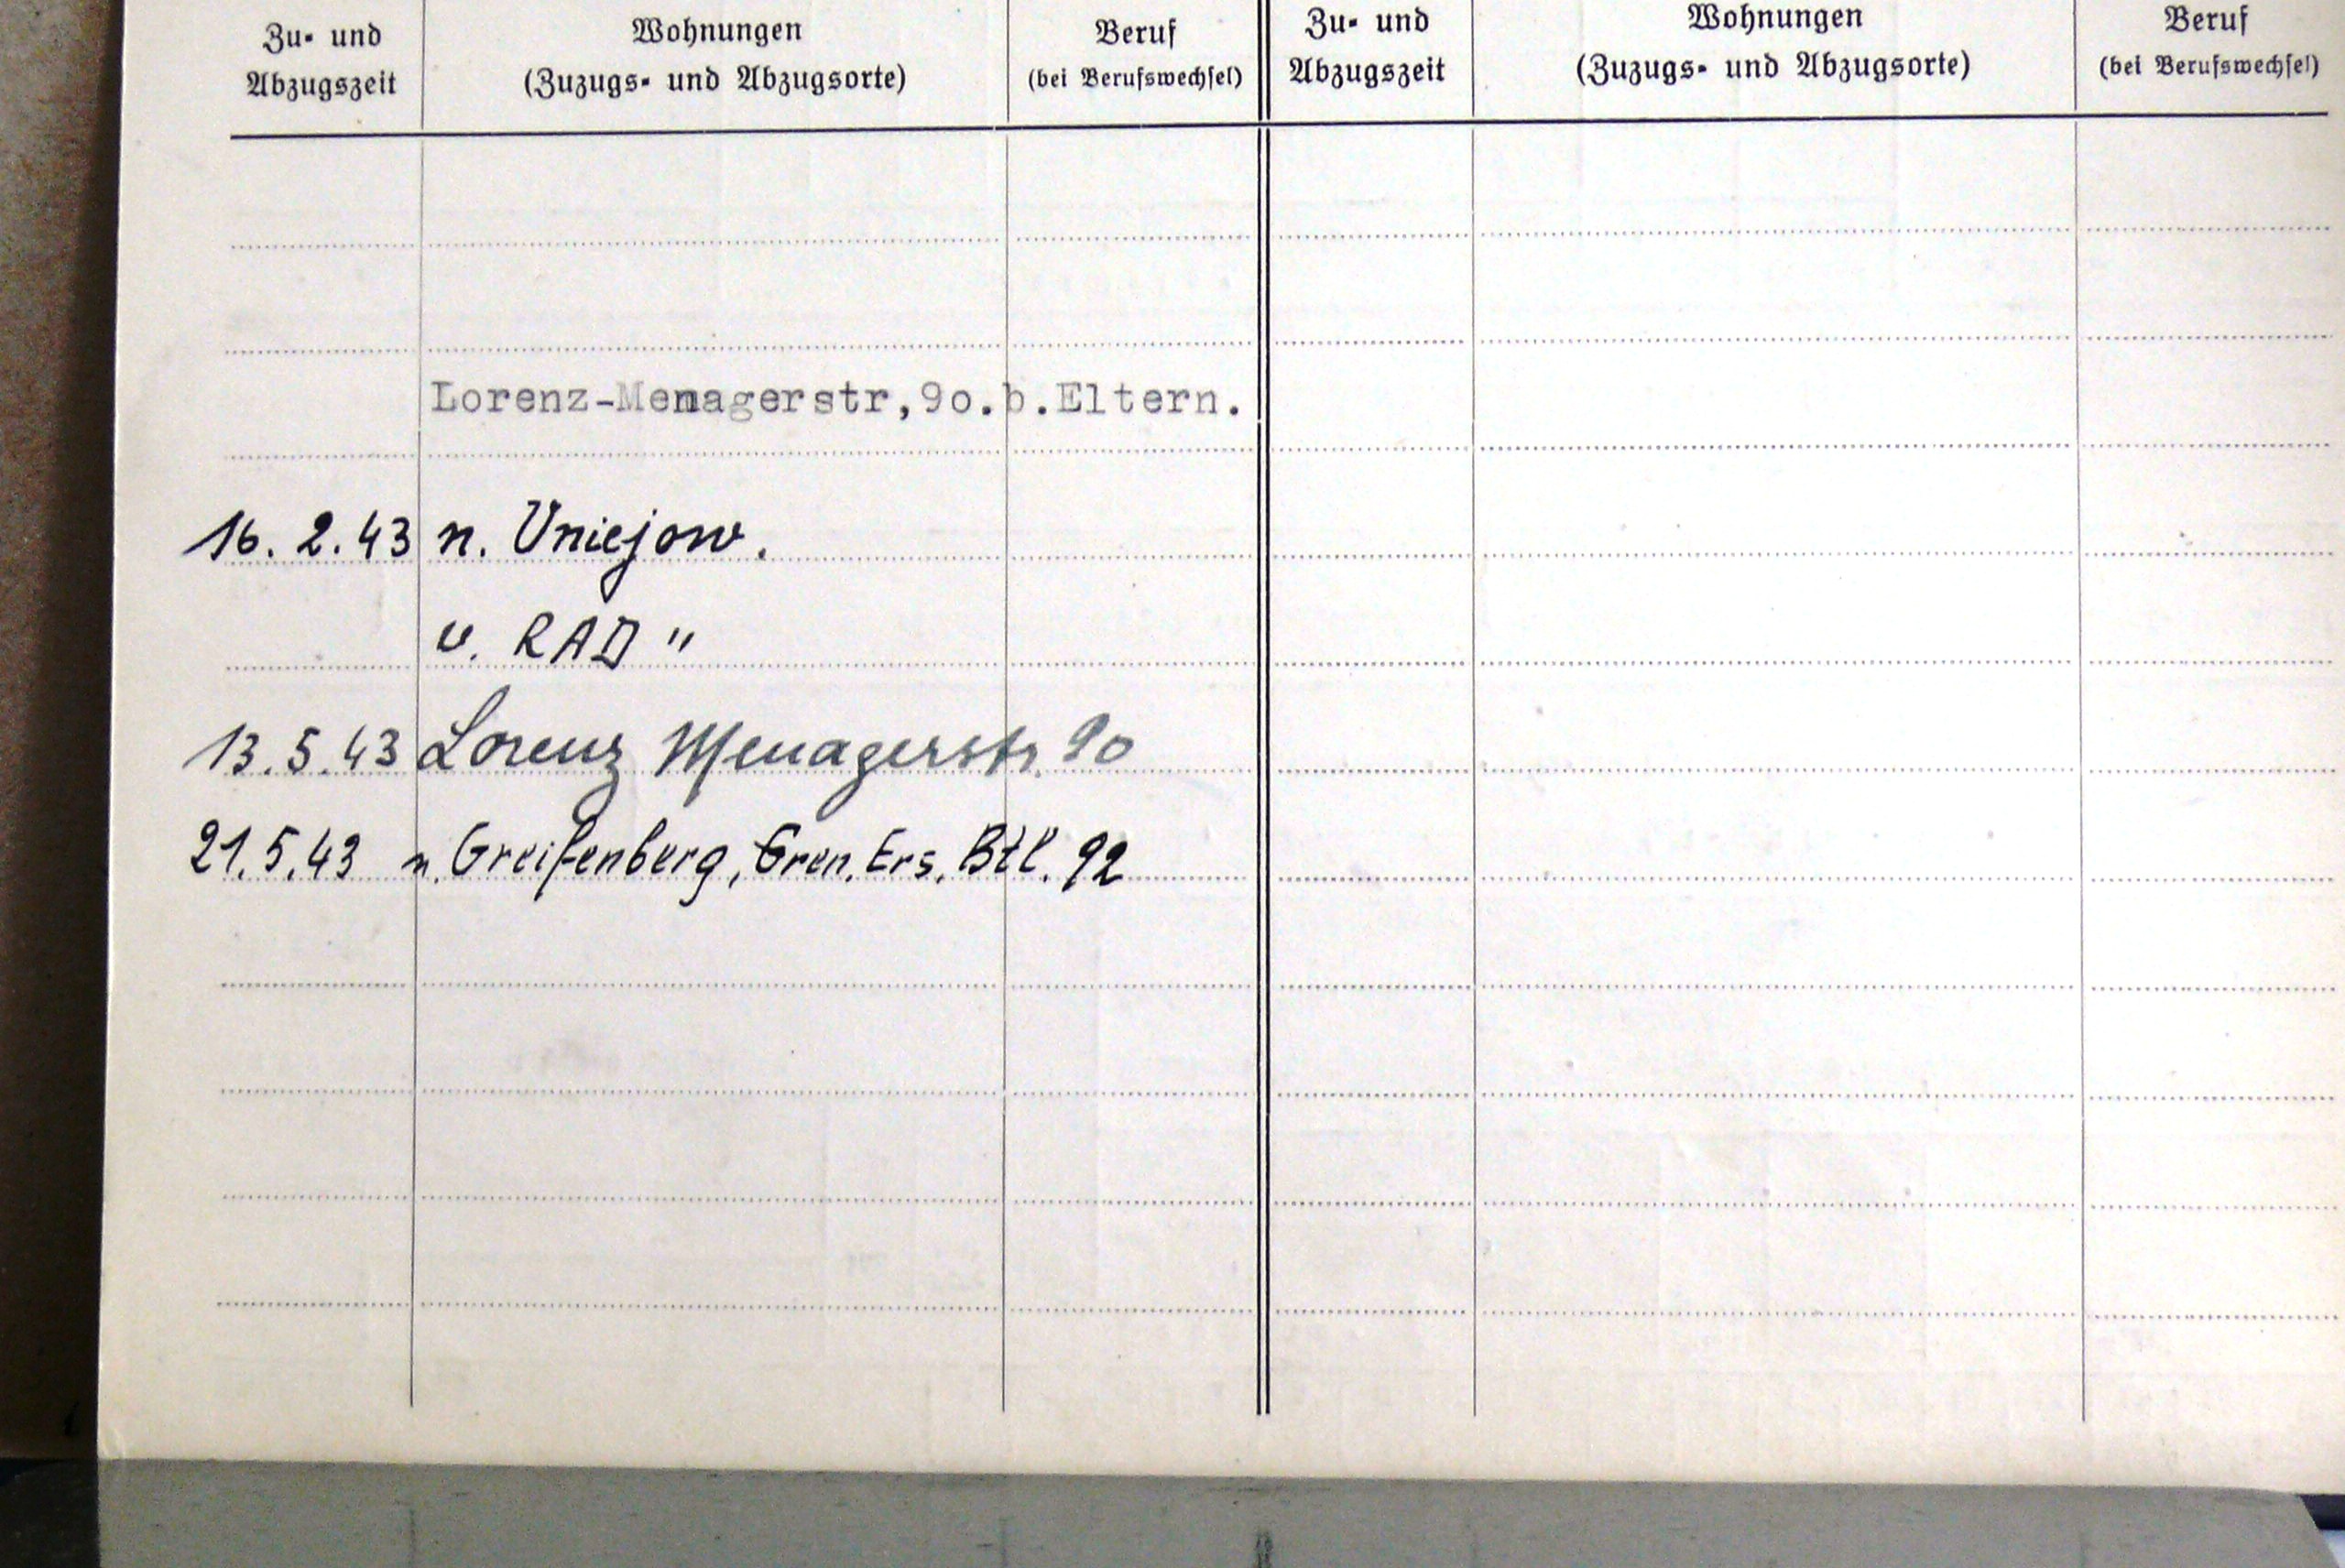 Zu- und Abzugszeit
Wohnungen (Zuzugs- und Abzugsorte)
Beruf (bei Berufswechsel)
Zu- und Abzugszeit
Wohnungen (Zuzugs- und Abzugsorte)
Beruf (bei Berufswechsel)
Lorenz-Menagerstr,9o.b.Eltern.
16.2.43 n. Uniejow.
u. RAD "
13.5.43 Lorenz Menagerstr. 90
21.5.43 n. Greifenberg, Gren. Ers. Btl. 92